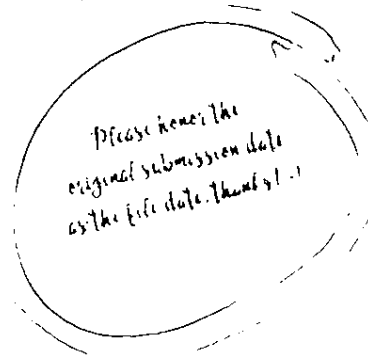 Please honor the
original submission date
as the file date. thanks!